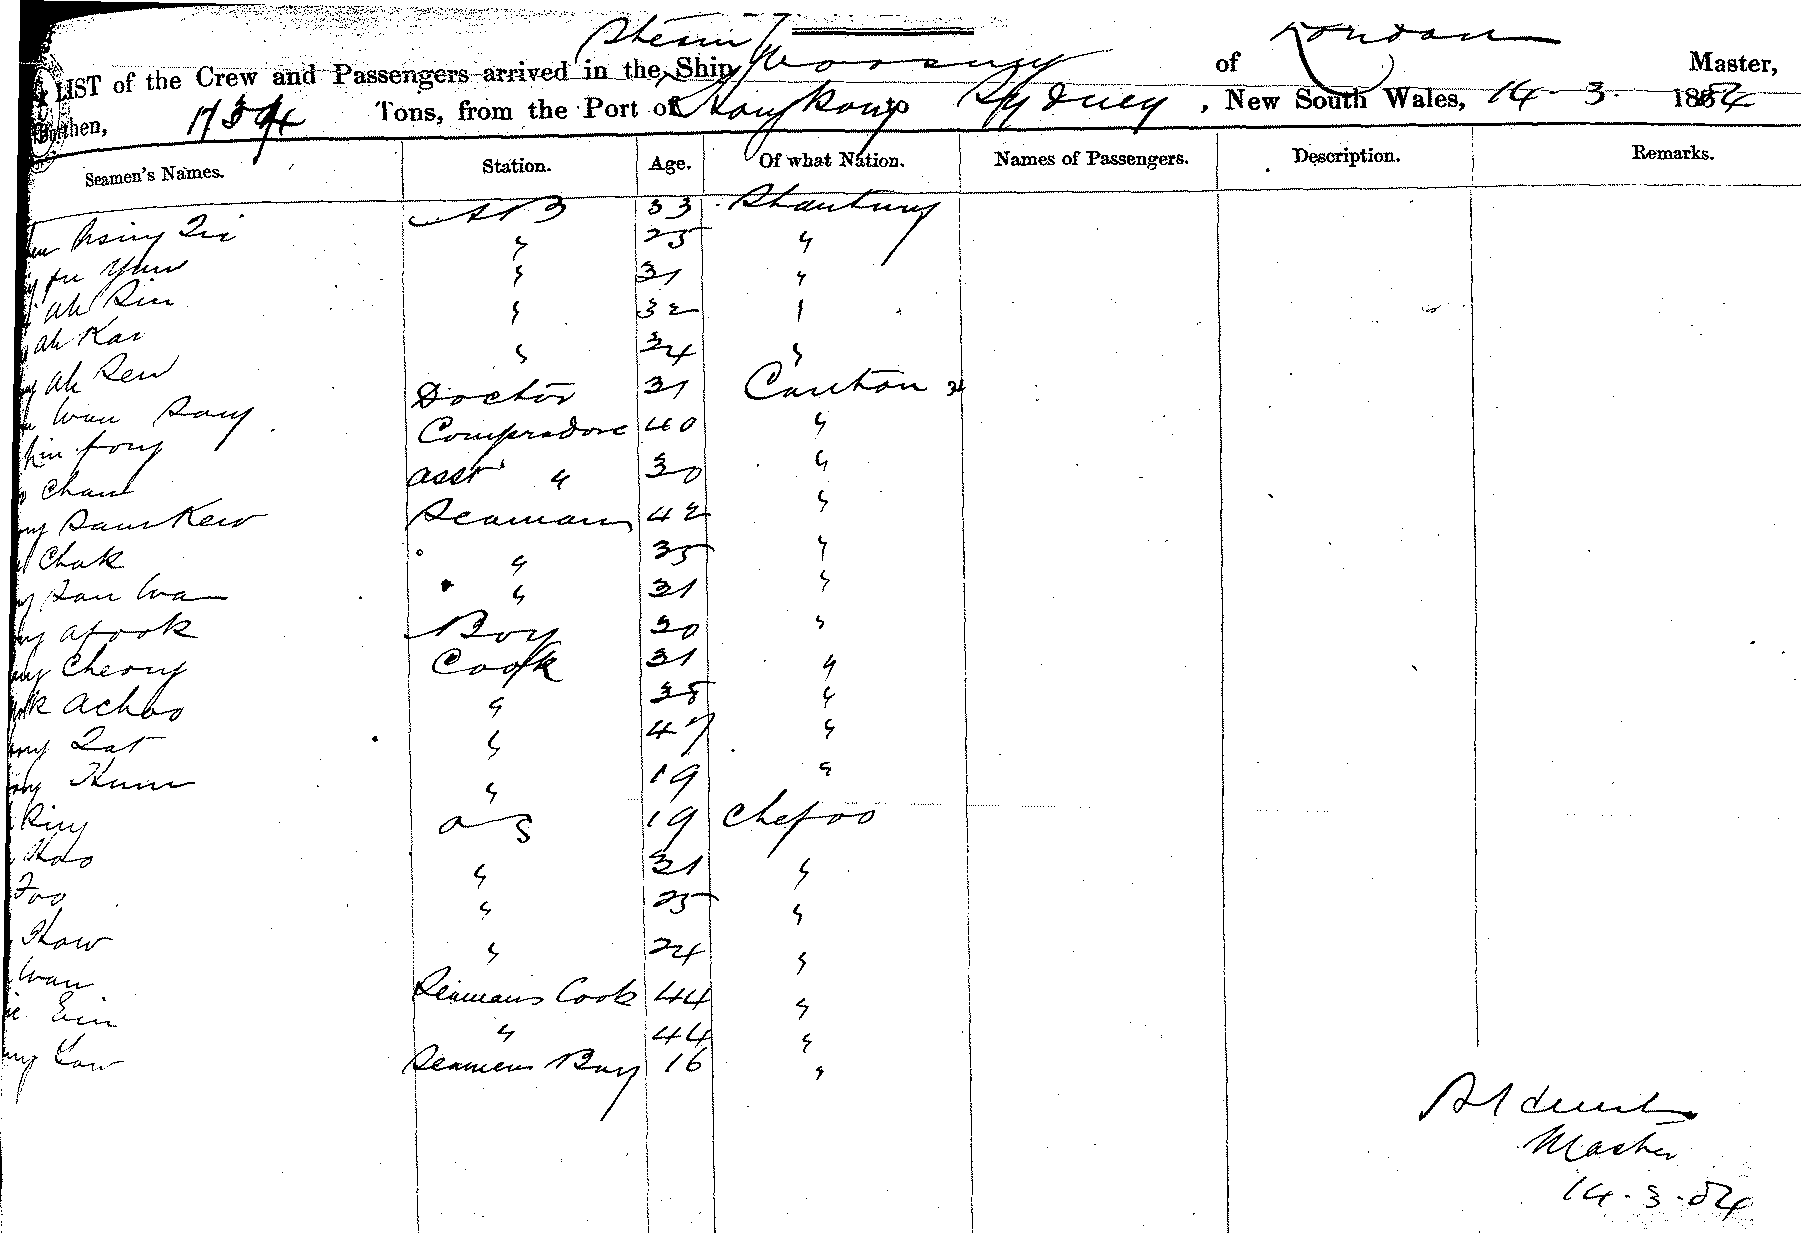 Steam London
LIST of the Crew and Passengers arrived in the Ship Woosung of Master,
Burthen, 1734 Tons, from the Port of Hongkong Sydney, New South Wales, 14 3 1884
Seamen's Names. Station. Age. Of what Nation. Names of Passengers. Description. Remarks.
Hsing AB 33 Shantung
fu Yuu " 25 "
ah Sin " 31 "
ah Kai " 32 "
ah Sew " 34 "
Wan Sang Doctor 31 Canton
fong Compradore 40 "
Chan asst " 30 "
Sam Kew Seaman 42 "
Chak " 35 "
San Wa " 31 "
afook Boy 30 "
Cheong Cook 31 "
achoo " 38 "
Tat " 47 "
Hum " 19 "
King O S 19 Chefoo
Hao " 31 "
Foo " 25 "
How " 24 "
Wan Seamans Cook 44 "
" 44 "
Low Seamens Boy 16 "
Master
14.3.84